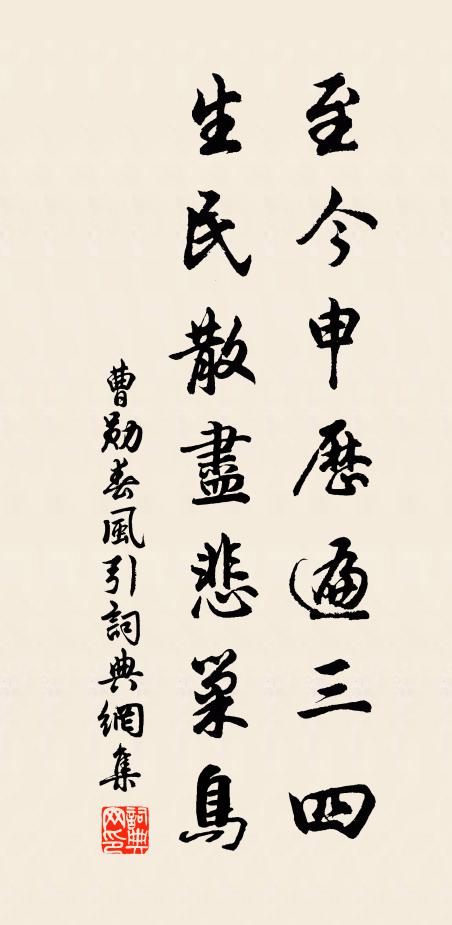 至今申歷遍三四
生民散盡悲巢鳥
曹勛春風引詞典網集
詞典網印